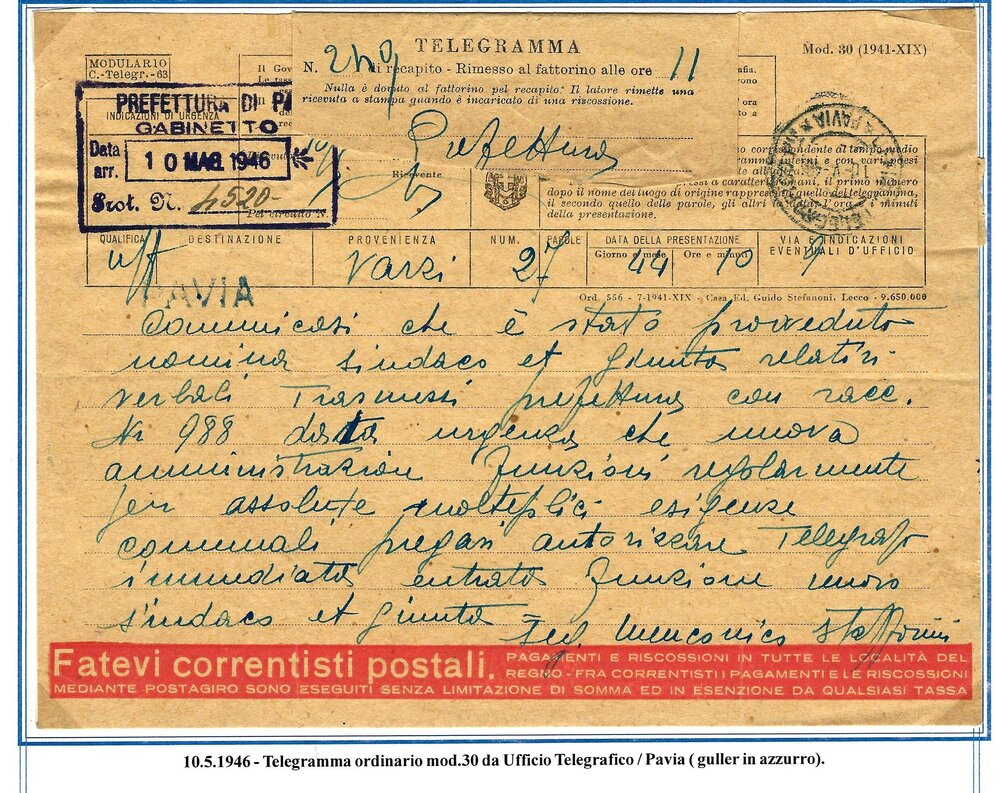 TELEGRAMMA
Mod. 30 (1941-XIX)
MODULARIO
C.-Telegr.-63
N. 249 di recapito - Rimesso al fattorino alle ore 11
Nulla è dovuto al fattorino pel recapito. Il latore rimette una
ricevuta a stampa quando è incaricato di una riscossione.
Il Gov
Le tass
PREFETTURA DI PA
INDICAZIONI DI URGENZA
GABINETTO
Data
arr. 10 MAG. 1946
Prot. N. 4520
Prefettura
Ricevente
Pel circuito N.
PAVIA
corrispondente al tempo medio
dopo il nome del luogo di origine rappresenta quello del telegramma,
il secondo quello delle parole, gli altri la data, l'ora e i minuti
della presentazione.
QUALIFICA DESTINAZIONE PROVENIENZA NUM. PAROLE DATA DELLA PRESENTAZIONE VIA E INDICAZIONI
Giorno e mese Ore e minuti EVENTUALI D'UFFICIO
uff Varzi 27 44 10
PAVIA
Ord. 556 - 7-1941-XIX - Casa Ed. Guido Stefanoni. Lecco - 9.650.000
Comunicasi che è stato provveduto
nomina sindaco et giunta relativi
verbali trasmessi prefettura con racc.
Nr 988 data urgenza che nuova
amministrazion funzioni regolarmente
per assolute molteplici esigenze
comunali pregasi autorizzare telegrafo
immediata entrata funzione nuovo
sindaco et giunta
Fatevi correntisti postali. PAGAMENTI E RISCOSSIONI IN TUTTE LE LOCALITÀ DEL
REGNO - FRA CORRENTISTI I PAGAMENTI E LE RISCOSSIONI
MEDIANTE POSTAGIRO SONO ESEGUITI SENZA LIMITAZIONE DI SOMMA ED IN ESENZIONE DA QUALSIASI TASSA
10.5.1946 - Telegramma ordinario mod.30 da Ufficio Telegrafico / Pavia ( guller in azzurro).